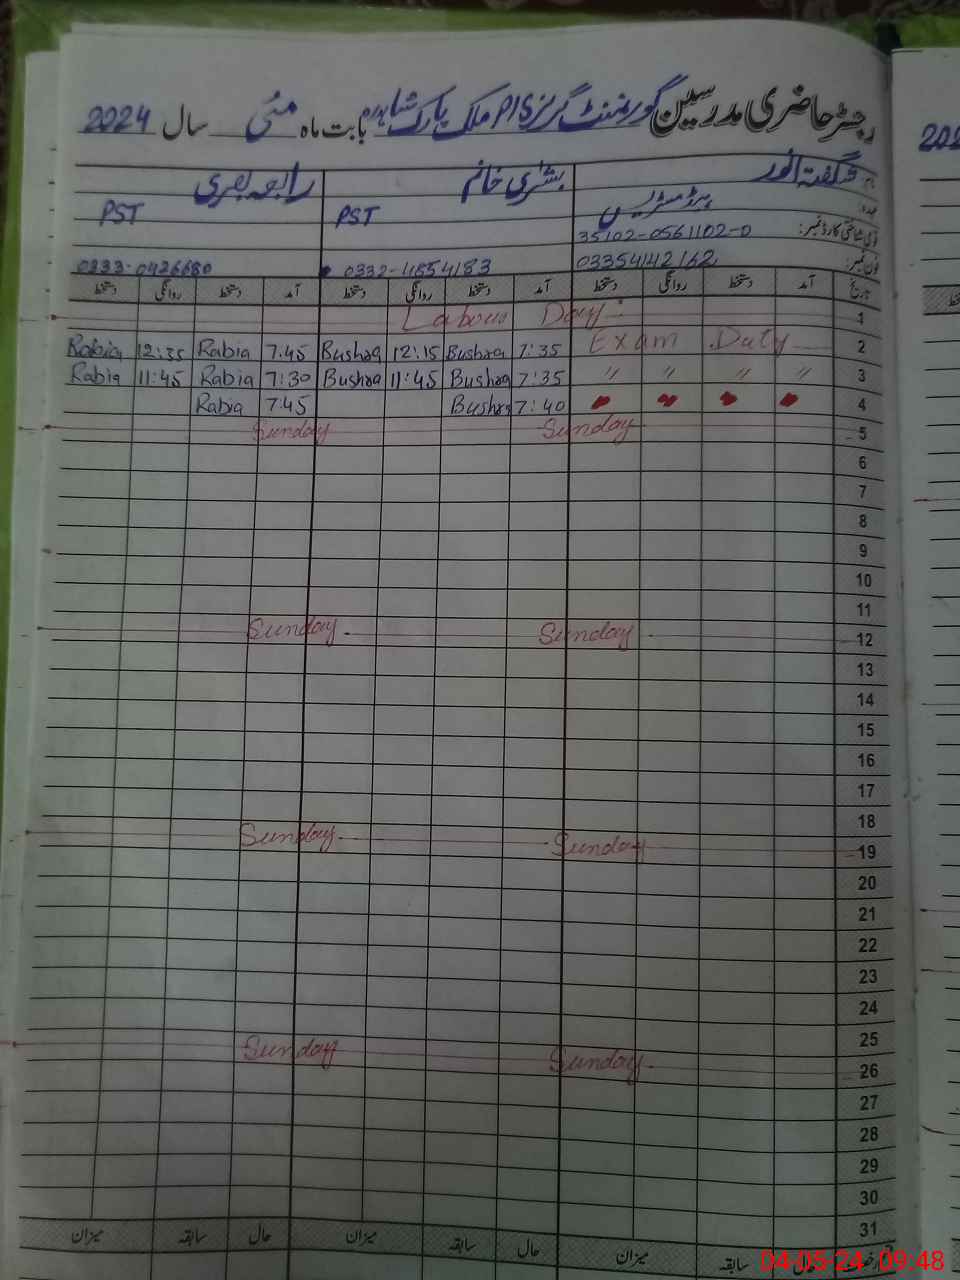 رجسٹر حاضری مدرسین گورنمنٹ گرلز P/S ملک پارک شاہدرہ بابت ماہ مئی سال 2024
نام شگفتہ انور بشریٰ خانم رابعہ بصری
عہدہ ہیڈمسٹریس PST PST
قومی شناختی کارڈ نمبر: 35102-0561102-0
فون نمبر: 03354142162 0332-4854183 0333-0426680
تاریخ آمد دستخط روانگی دستخط آمد دستخط روانگی دستخط آمد دستخط روانگی دستخط
1 Labour Day
2 Exam Duty 7:35 Bushra 12:15 Bushra 7.45 Rabia 12:35 Rabia
3 " " " " 7:35 Bushra 11:45 Bushra 7:30 Rabia 11:45 Rabia
4 7:40 Bushra 7:45 Rabia
5 Sunday Sunday
6
7
8
9
10
11
12 Sunday Sunday
13
14
15
16
17
18
19 Sunday Sunday
20
21
22
23
24
25
26 Sunday Sunday
27
28
29
30
31
سابقہ میزان حال سابقہ میزان حال سابقہ میزان
04-05-24 09:48
202